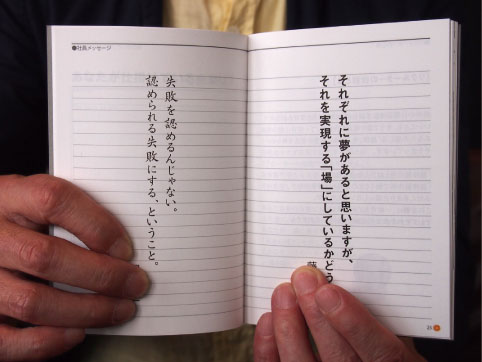 ●社長メッセージ
それぞれに夢があると思いますが、
それを実現する「場」にしているかどう
失敗を認めるんじゃない。
認められる失敗にする、ということ。